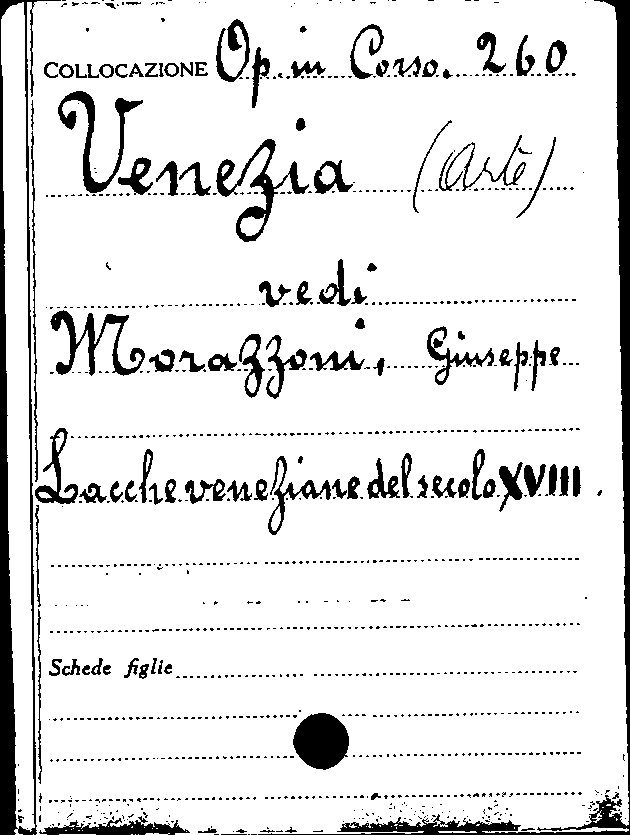 COLLOCAZIONE Op. in Corso. 260
Venezia (Arte)
vedi
Morazzoni, Giuseppe
Lacche veneziane del secolo XVIII.
Schede figlie